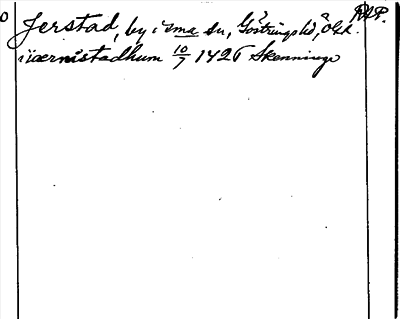 Jerstad, by i sma sn, Göstrings hd, Ögl. RAP.
i iærnistadhum 10/7 1426 Skenninge